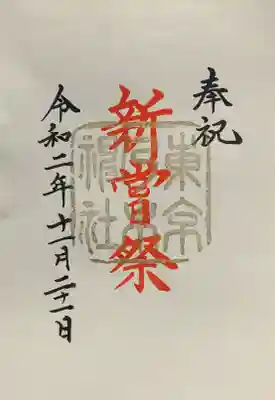 奉祝
新嘗祭
令和二年十一月二十一日